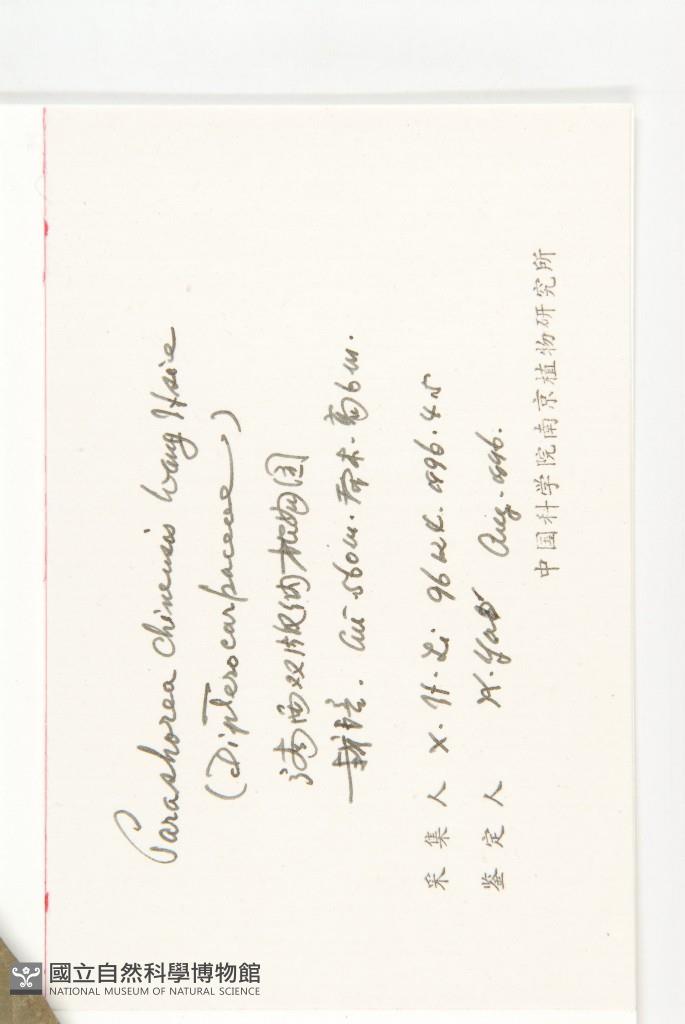 Parashorea chinensis Wang Hsie
(Dipterocarpaceae)
滇西双版纳植物园
栽培. alt 560m. 乔木. 高6m.
采集人 X. H. Li 1996.4.5
鉴定人 Aug. 1996.
中国科学院南京植物研究所
國立自然科學博物館
NATIONAL MUSEUM OF NATURAL SCIENCE